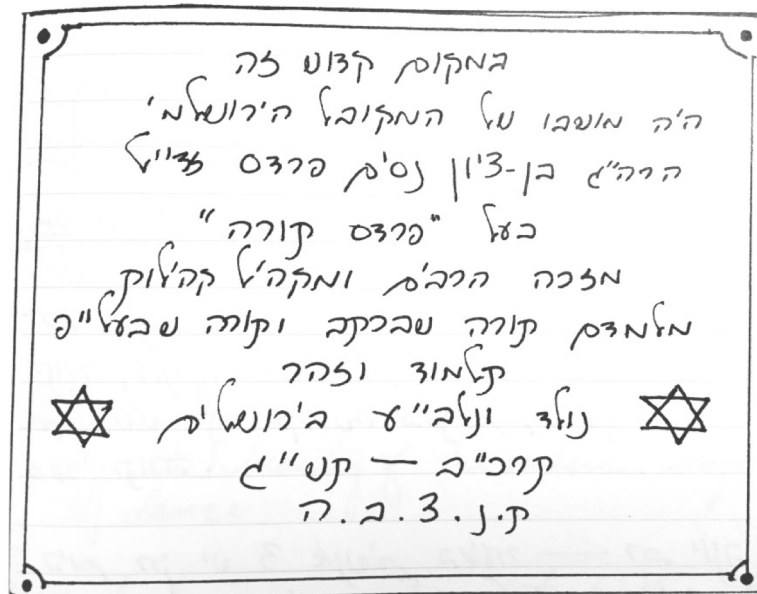 במקום קדוש זה
היה מושבו של המקובל הירושלמי
הרה"ג בן-ציון נסים פרדס זצי"ל
בעל "פרדס תורה"
מזכה הרבים ומקהיל קהילות
מלמדם תורה שבכתב ותורה שבעל"פ
תלמוד וזהר
נולד ונלב"ע בירושלים
תרכ"ב — תש"ג
ת.נ.צ.ב.ה